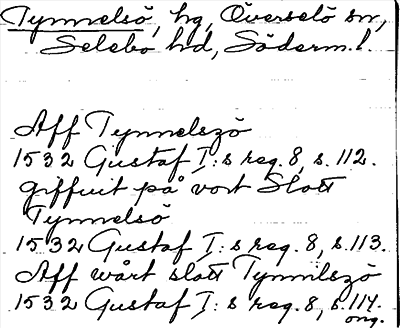 Tynnelsö, hg, Överselö sn,
Selebo hd, Söderm. l.
Aff Tynnelszö
1532 Gustaf I:s reg. 8, s. 112.
giffuit på vort Slott
Tynnelsö
1532 Gustaf I:s reg. 8, s. 113.
Aff wårt slott Tynnilszö
1532 Gustaf I:s reg. 8, s. 114.
orig.